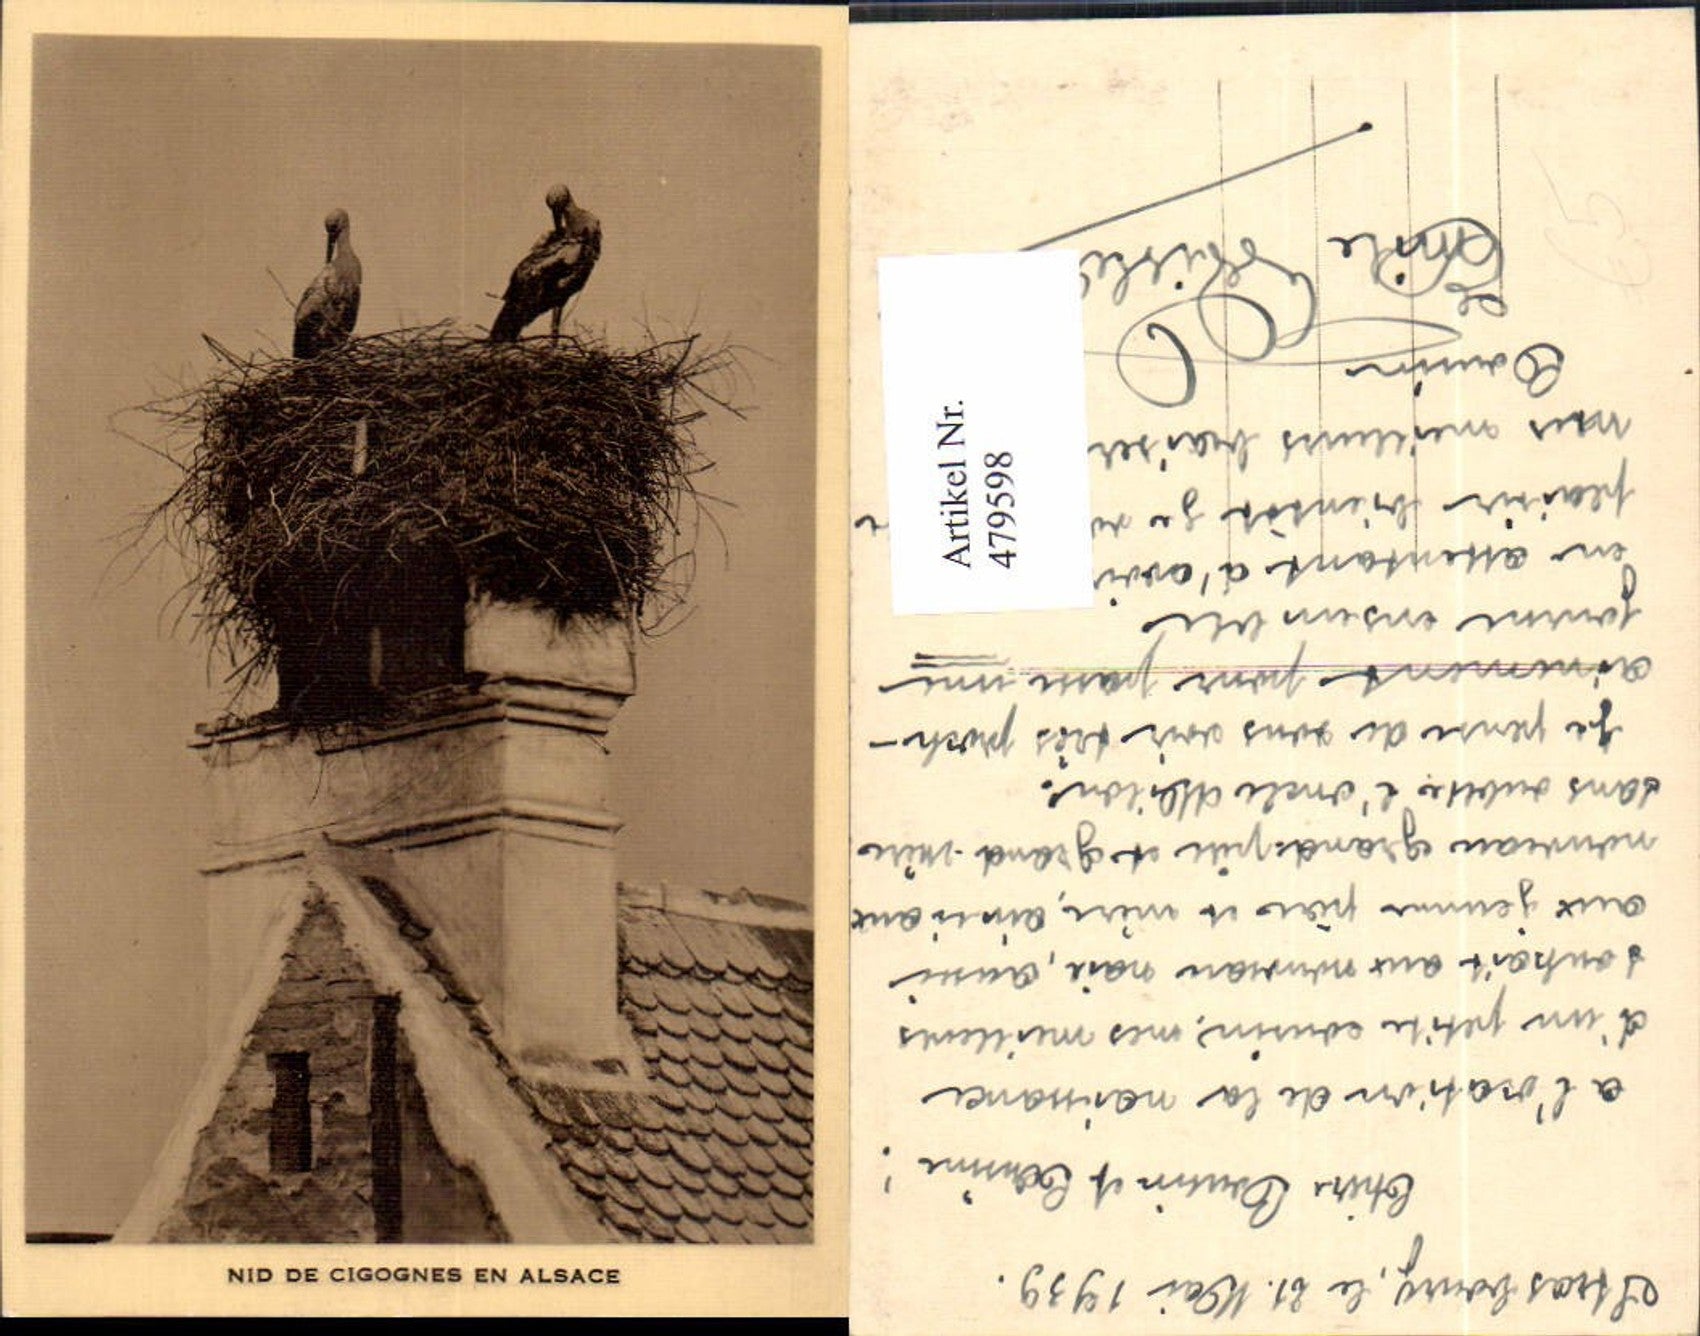 NID DE CIGOGNES EN ALSACE
Artikel Nr.
479598
Strasbourg, le 21. Mai 1939.
Chère Cousin et Cousine!
a l'ocation de la naissance
d'un petite cousin, mes meilleurs
souhait aux nouveau naie, aussi
aux jeunne père et mère, ainsi aux
nouveau grandspère et grand-mère
sans oublie l'oncle
Je pense de vous voir très proch-
ainement pour passe une
journé ensemble
en attentant d'avoir
plaisir bientôt je
mes meilleurs baiser
Cousin
Emile